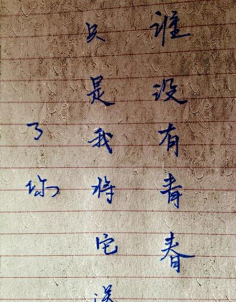 谁没有青春
只是我将它送
了你